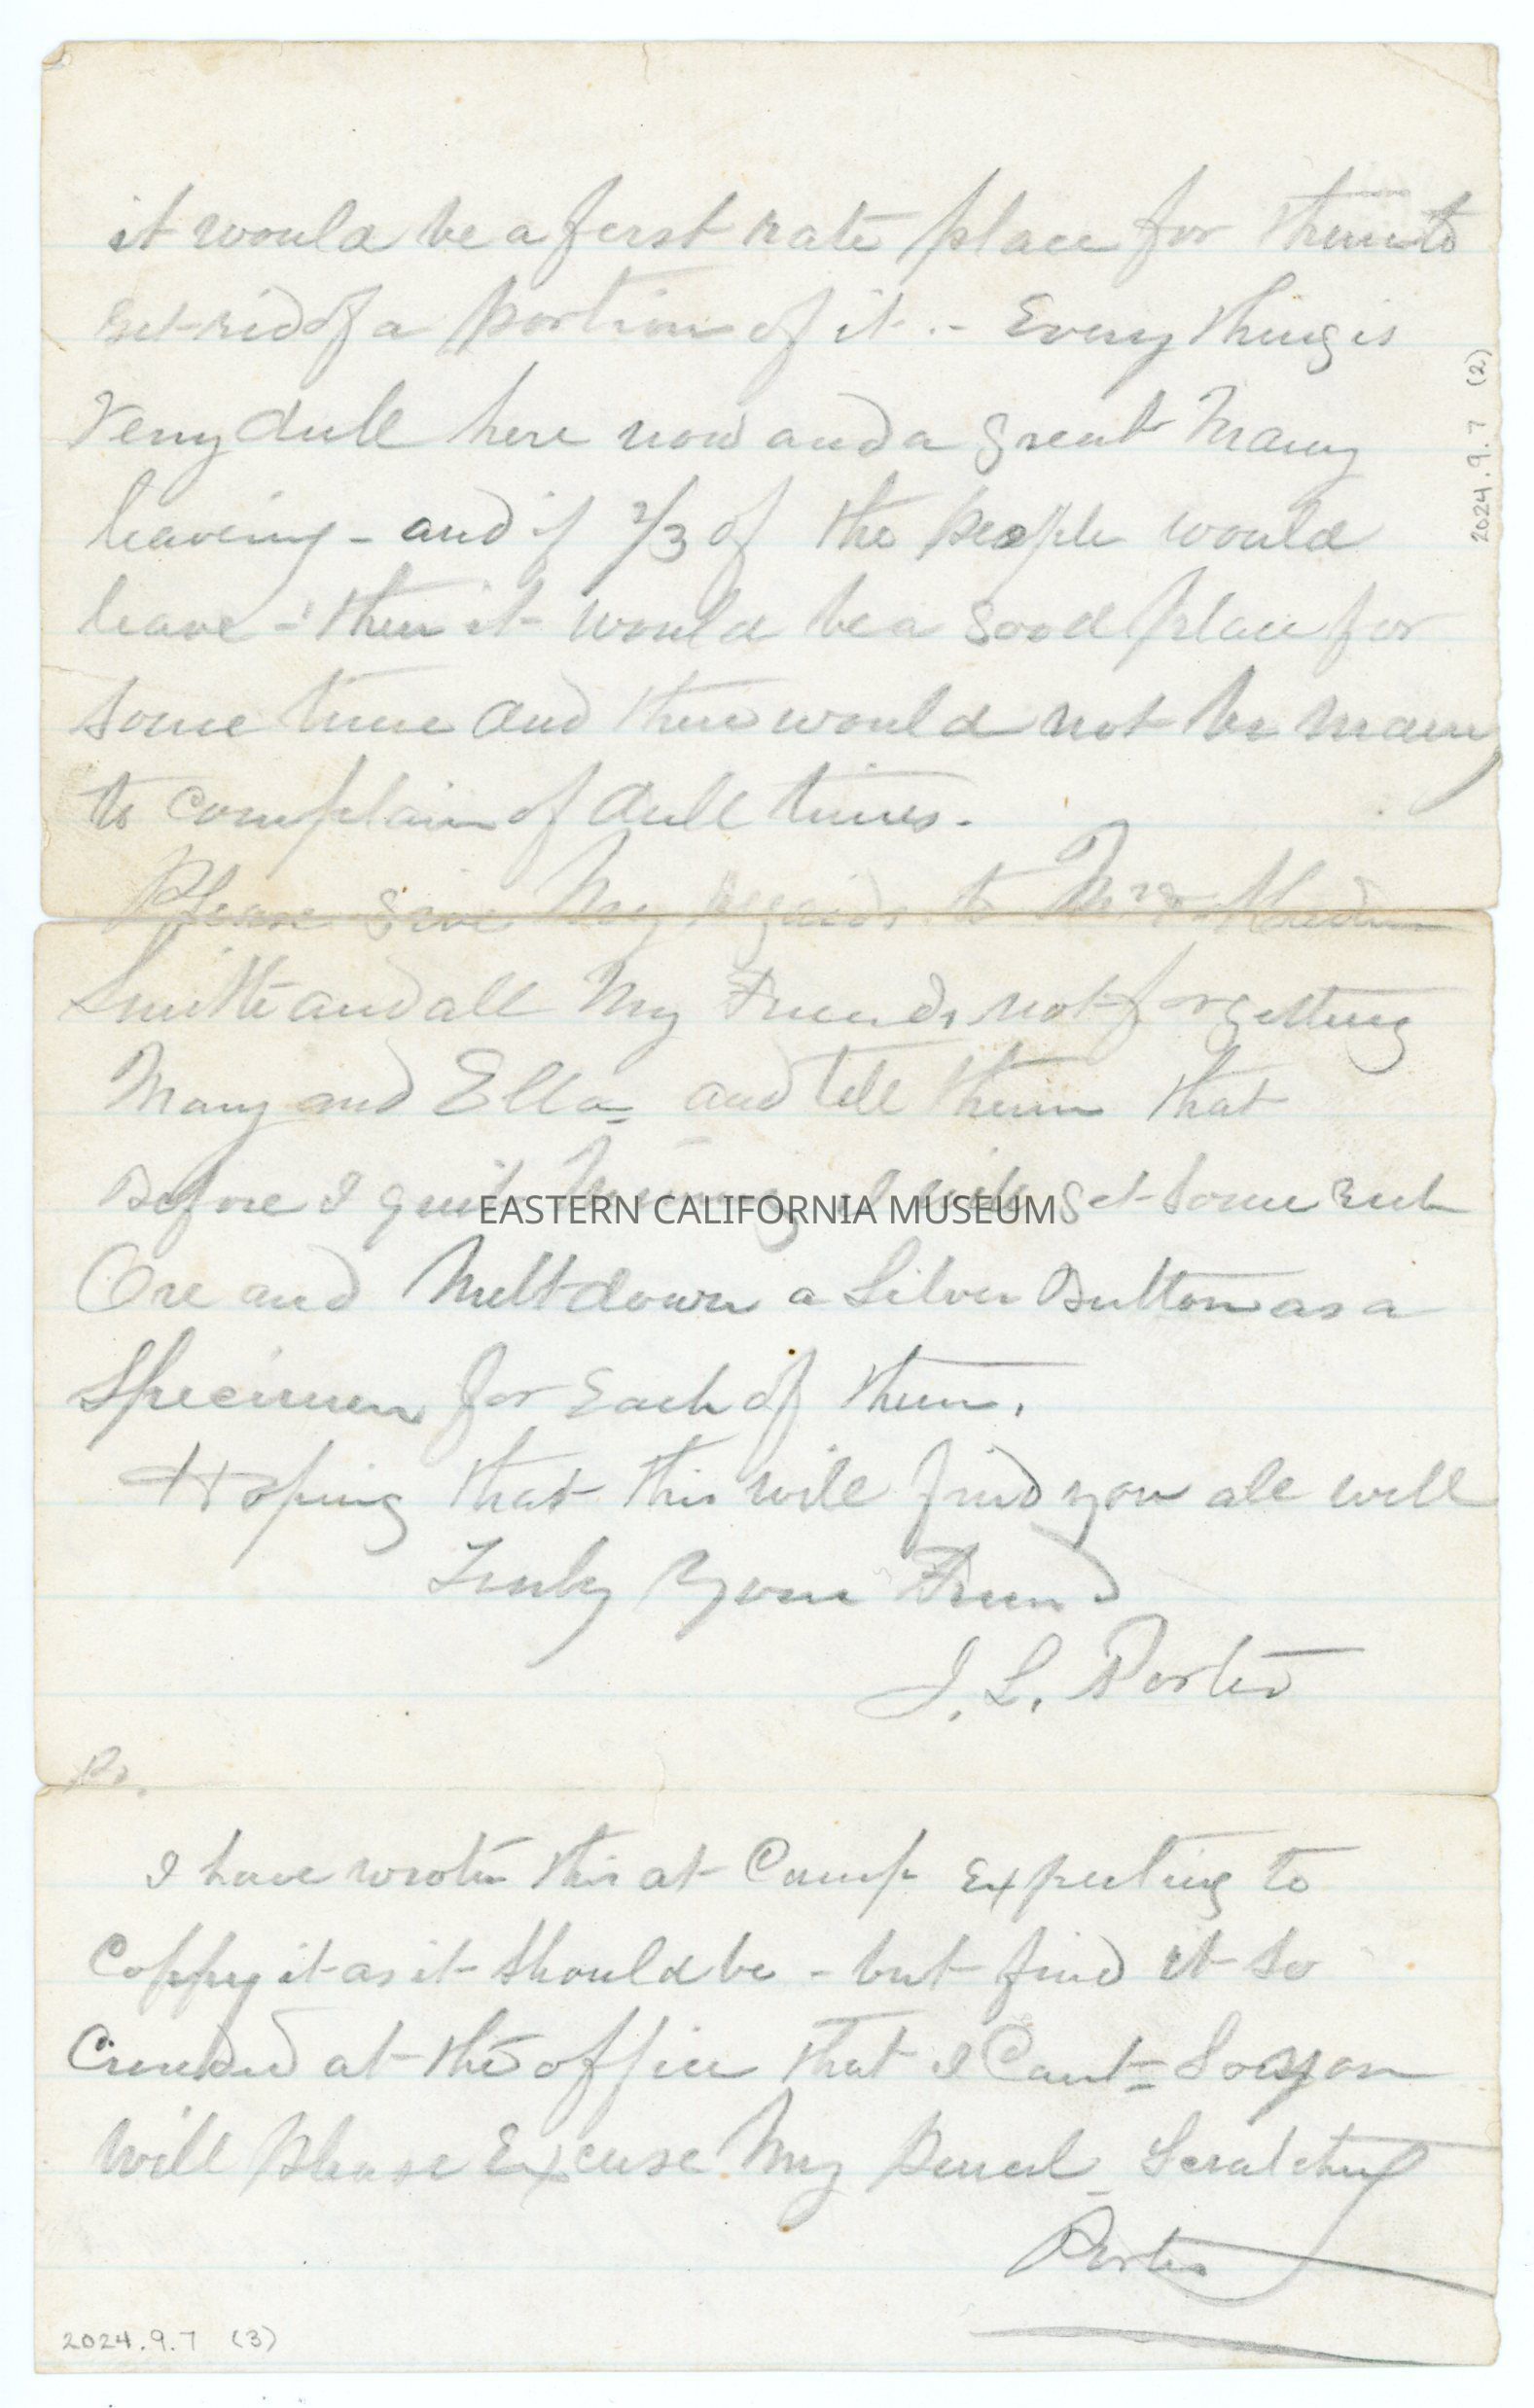 it would be a first rate place for them to
get rid of a portion of it .- Every thing is
Verry dull here now and a great Many
leaveing - and if 2/3 of the people would
leave - then it would be a good place for
some time and there would not be many
to complain of dull times.
Please give My regards to Mrs.
Smith and all My Friends not forgetting
Mary and Ella - and tell them that
Before I quit Mining I will get some rich
Ore and Melt down a Silver Button as a
Specimen for Each of them.
Hoping that this will find you all well
Truly Your Friend
J. L. Porter
Ps.
I have wrote this at Camp Expecting to
Coppy it as it should be - but find it so
Crowded at the office that I Cant - So you
will please Excuse My Pencil - Scratching
Porter
2024.9.7 (2)
2024.9.7 (3)
EASTERN CALIFORNIA MUSEUM